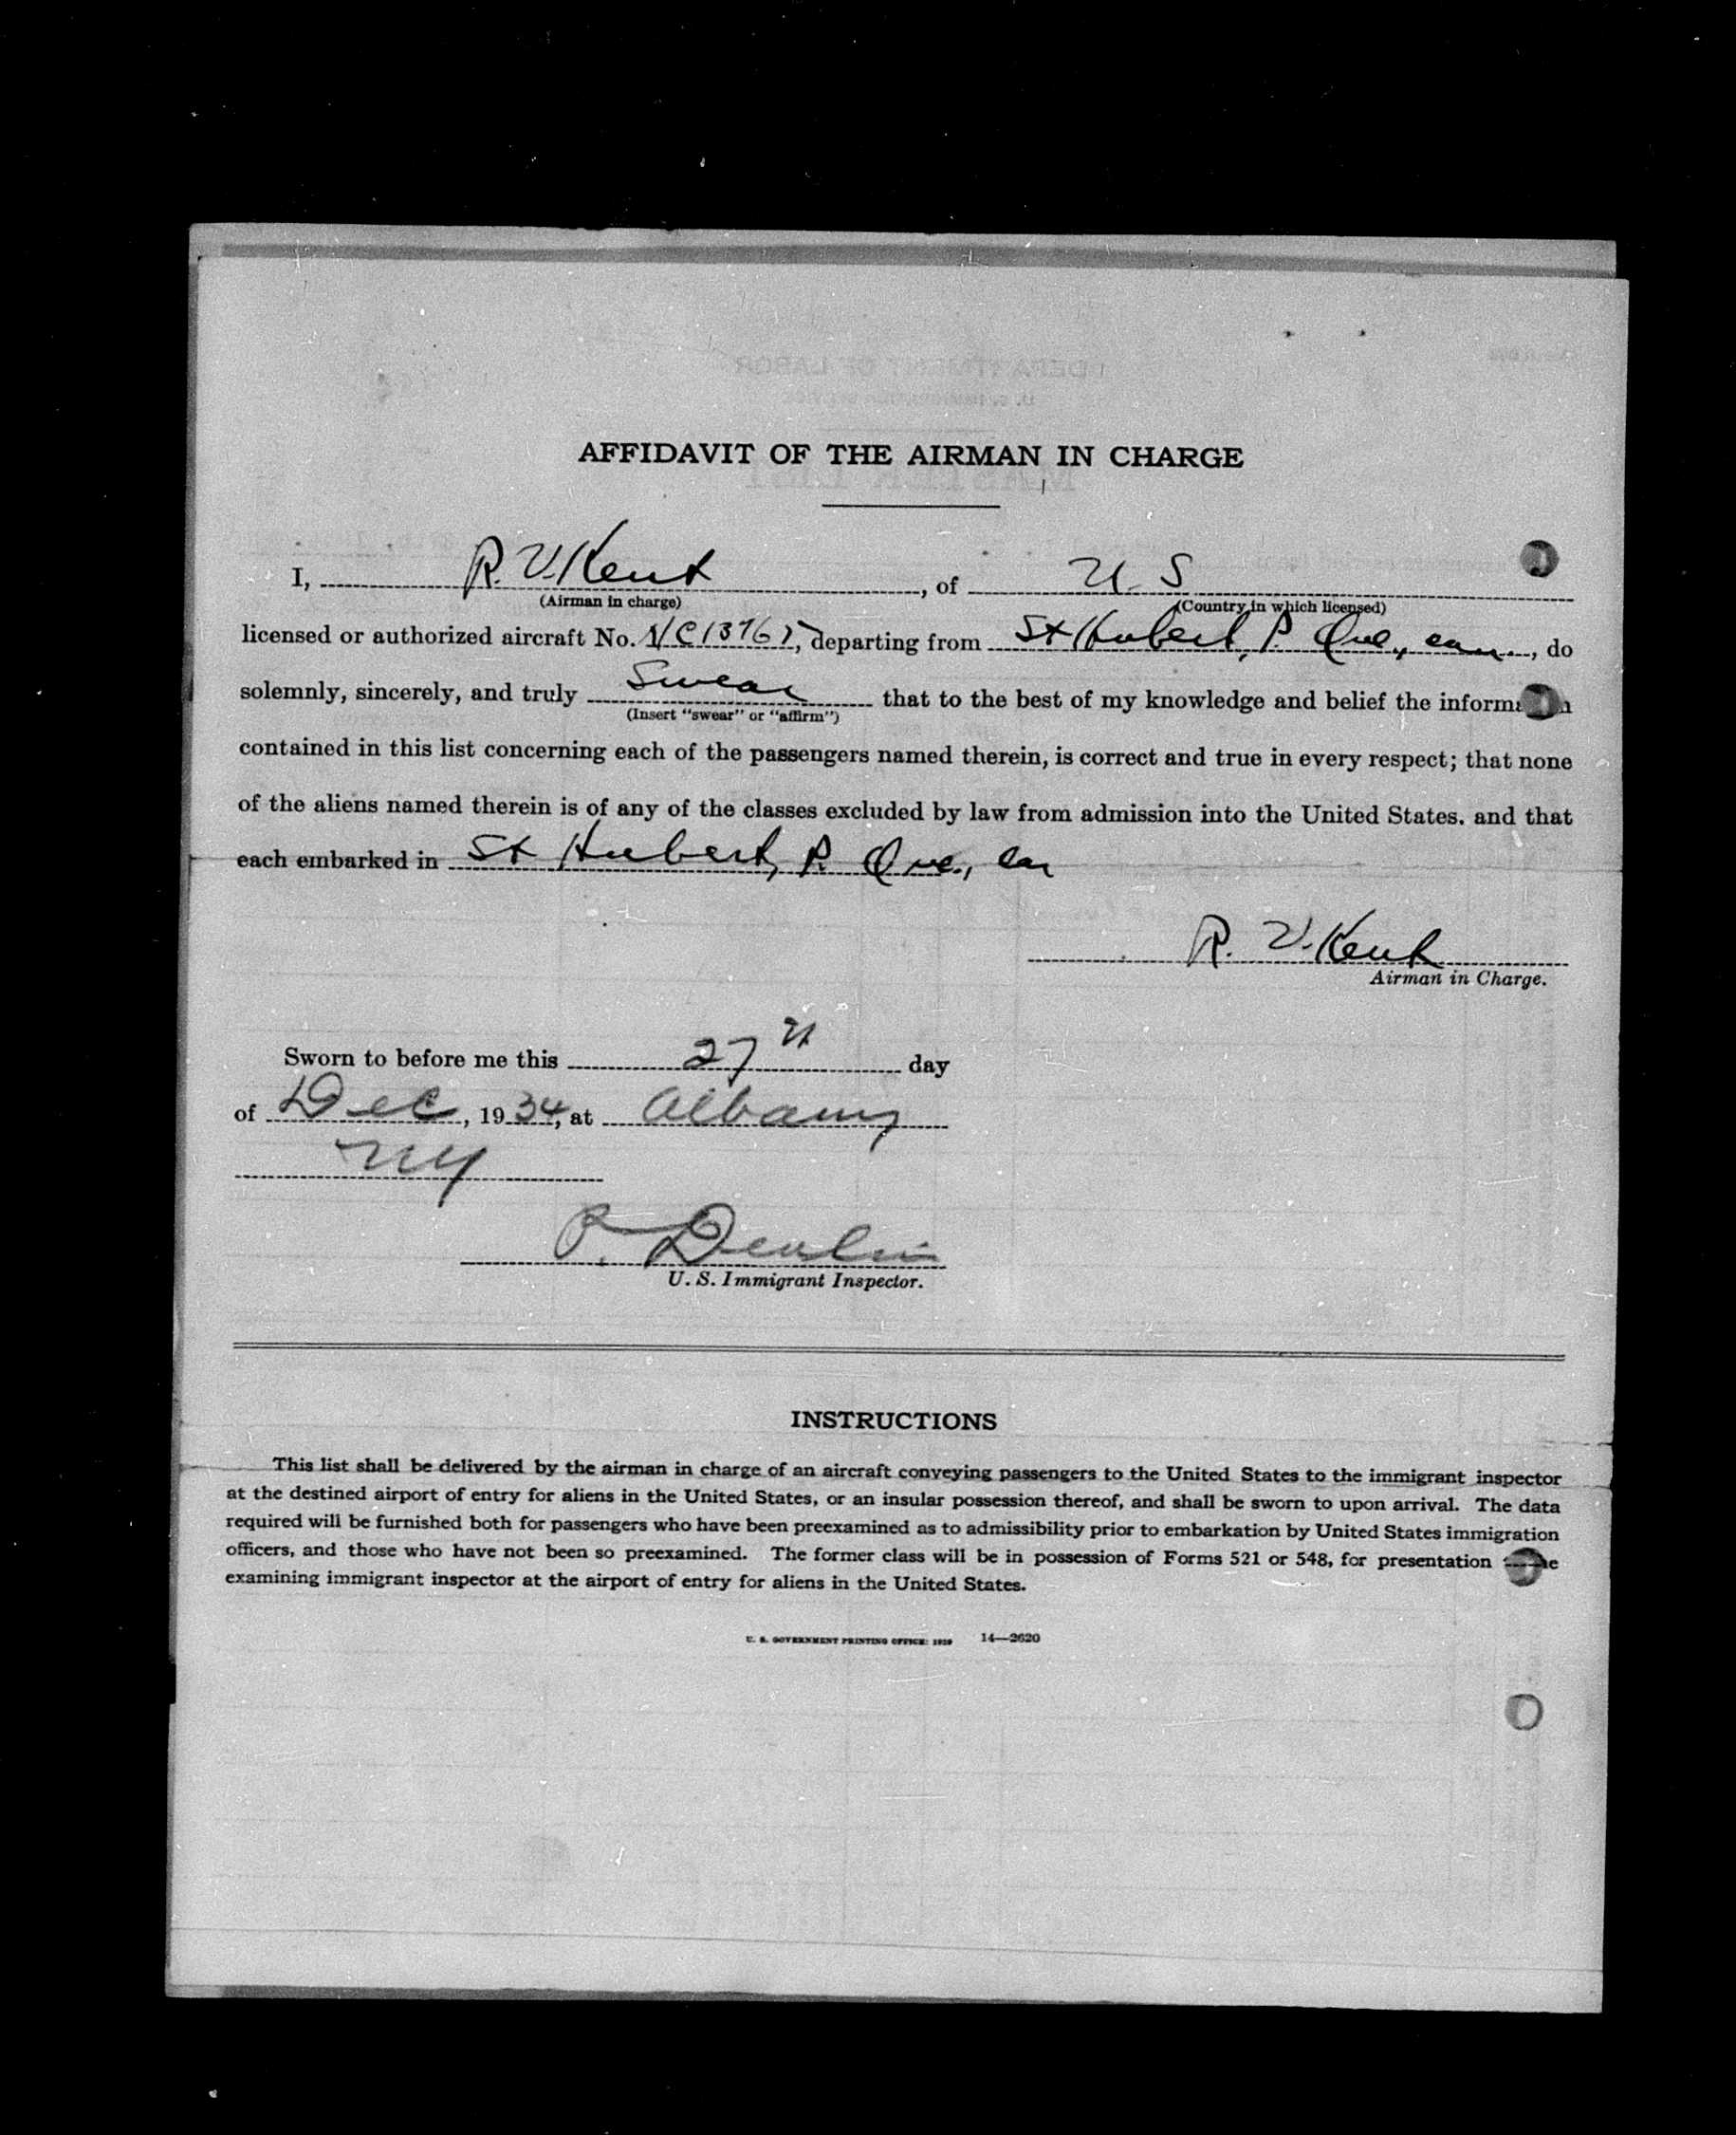 AFFIDAVIT OF THE AIRMAN IN CHARGE
I, R. V. Kent, of U. S
(Airman in charge) (Country in which licensed)
licensed or authorized aircraft No. NC13765, departing from St Hubert, P. Que., can., do
solemnly, sincerely, and truly Swear that to the best of my knowledge and belief the information
(Insert "swear" or "affirm")
contained in this list concerning each of the passengers named therein, is correct and true in every respect; that none
of the aliens named therein is of any of the classes excluded by law from admission into the United States. and that
each embarked in St Hubert, P. Que., can
R. V. Kent
Airman in Charge.
Sworn to before me this 27th day
of Dec, 1934, at Albany
NY
P. Devlin
U. S. Immigrant Inspector.
INSTRUCTIONS
This list shall be delivered by the airman in charge of an aircraft conveying passengers to the United States to the immigrant inspector
at the destined airport of entry for aliens in the United States, or an insular possession thereof, and shall be sworn to upon arrival. The data
required will be furnished both for passengers who have been preexamined as to admissibility prior to embarkation by United States immigration
officers, and those who have not been so preexamined. The former class will be in possession of Forms 521 or 548, for presentation to the
examining immigrant inspector at the airport of entry for aliens in the United States.
U. S. GOVERNMENT PRINTING OFFICE: 1929 14—2620